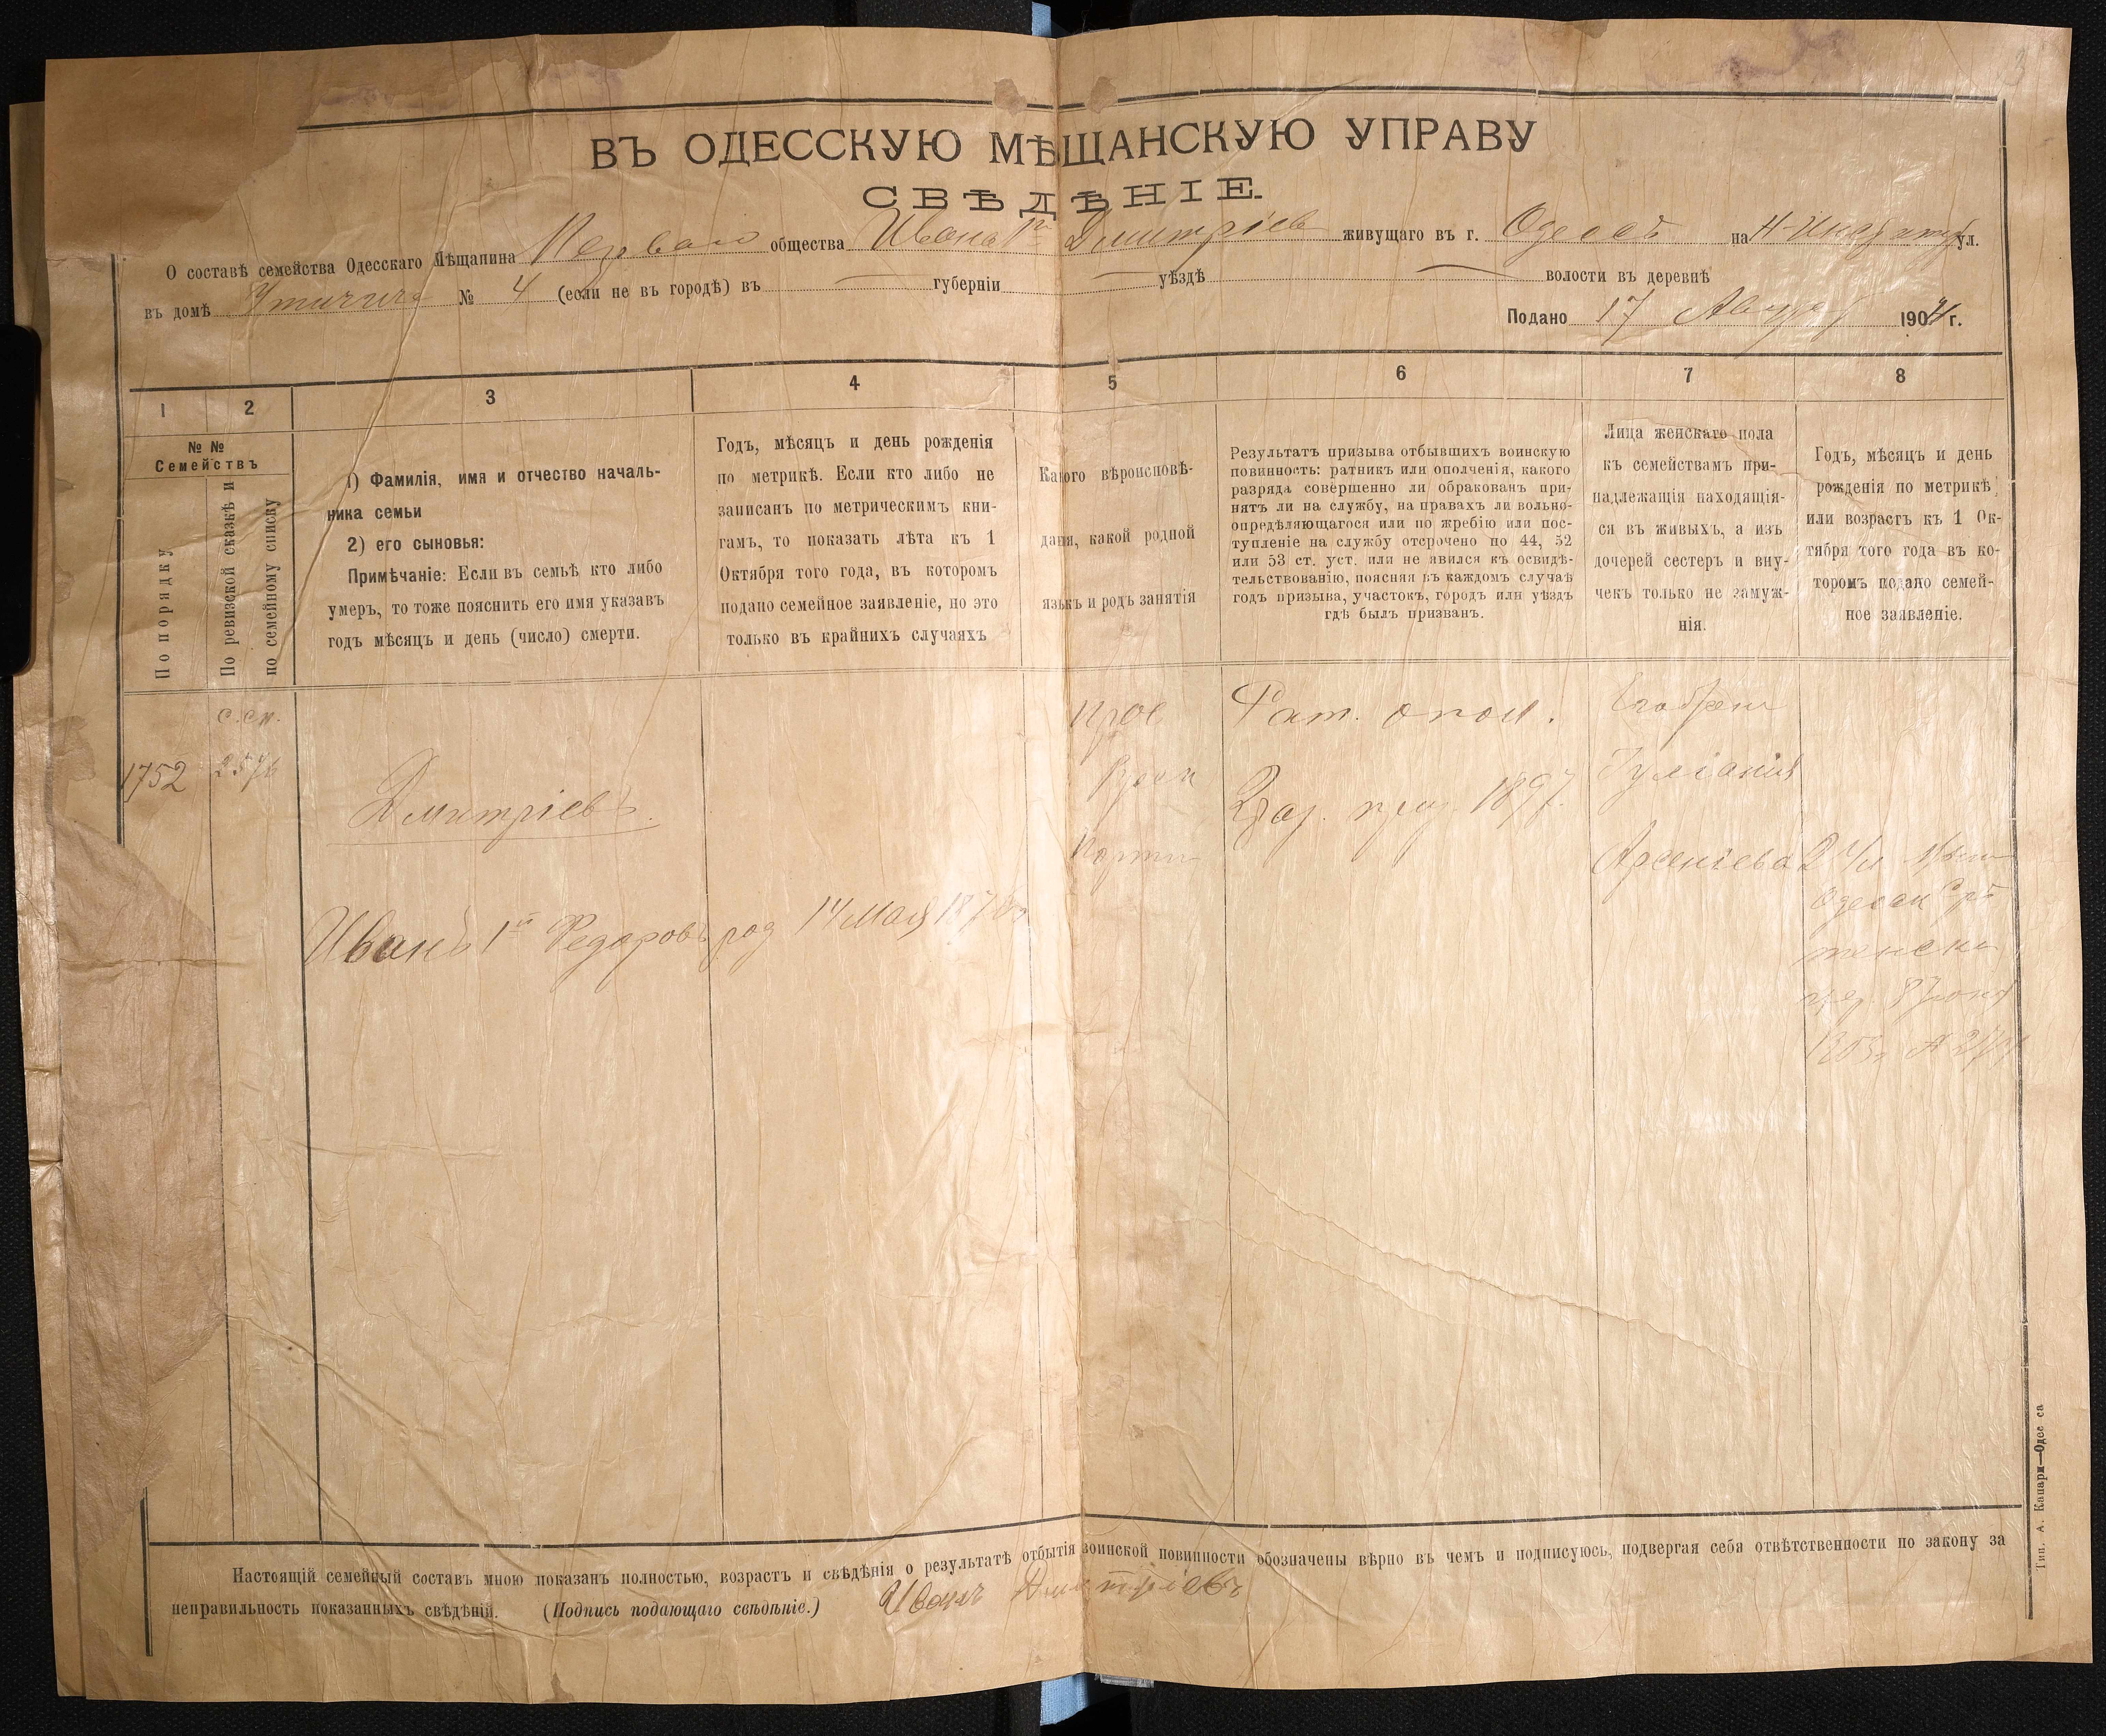 ВЪ ОДЕССКУЮ МѢЩАНСКУЮ УПРАВУ
СВѢДѢНІЕ.
О составѣ семейства Одесскаго Мѣщанина Перваго общества Ивана 1го Дмитріев живущаго въ г. Одессѣ на ул.
въ домѣ № 4 (если не въ городѣ) въ — губерніи — уѣздѣ — волости въ деревнѣ
Подано 17 1904 г.
1 2 3 4 5 6 7 8
№ №
Семействъ
По порядку
По ревизской сказкѣ и
по семейному списку
1) Фамилія, имя и отчество началь-
ника семьи
2) его сыновья:
Примѣчаніе: Если въ семьѣ кто либо
умеръ, то тоже пояснить его имя указавъ
годъ мѣсяцъ и день (число) смерти.
Годъ, мѣсяцъ и день рожденія
по метрикѣ. Если кто либо не
записанъ по метрическимъ кни-
гамъ, то показать лѣта къ 1
Октября того года, въ которомъ
подано семейное заявленіе, но это
только въ крайнихъ случаяхъ
Какого вѣроисповѣ-
данія, какой родной
языкъ и родъ занятія
Результатъ призыва отбывшихъ воинскую
повинность: ратникъ или ополченія, какого
разряда совершенно ли обракованъ при-
нятъ ли на службу, на правахъ ли вольно-
опредѣляющагося или по жребію или пос-
тупленіе на службу отсрочено по 44, 52
или 53 ст. уст. или не явился къ освидѣ-
тельствованію, поясняя въ каждомъ случаѣ
годъ призыва, участокъ, городъ или уѣздъ
гдѣ былъ призванъ.
Лица женскаго пола
къ семействамъ при-
надлежащія находящія-
ся въ живыхъ, а изъ
дочерей сестеръ и вну-
чекъ только не замуж-
нія.
Годъ, мѣсяцъ и день
рожденія по метрикѣ
или возрастъ къ 1 Ок-
тября того года въ ко-
торомъ подано семей-
ное заявленіе.
с.сп.
1752
Дмитріевъ.
Иванъ 1й Федоровъ род 14 Мая
Рат. опол.
2 раз. 1897.
Іуліанія
Арсеніева
Настоящій семейный составъ мною показанъ полностью, возрастъ и свѣдѣнія о результатѣ отбытія воинской повинности обозначены вѣрно въ чемъ и подписуюсь, подвергая себя отвѣтственности по закону за
неправильность показанныхъ свѣдѣній. (Подпись подающаго свѣдѣніе.) Иванъ Дмитріевъ